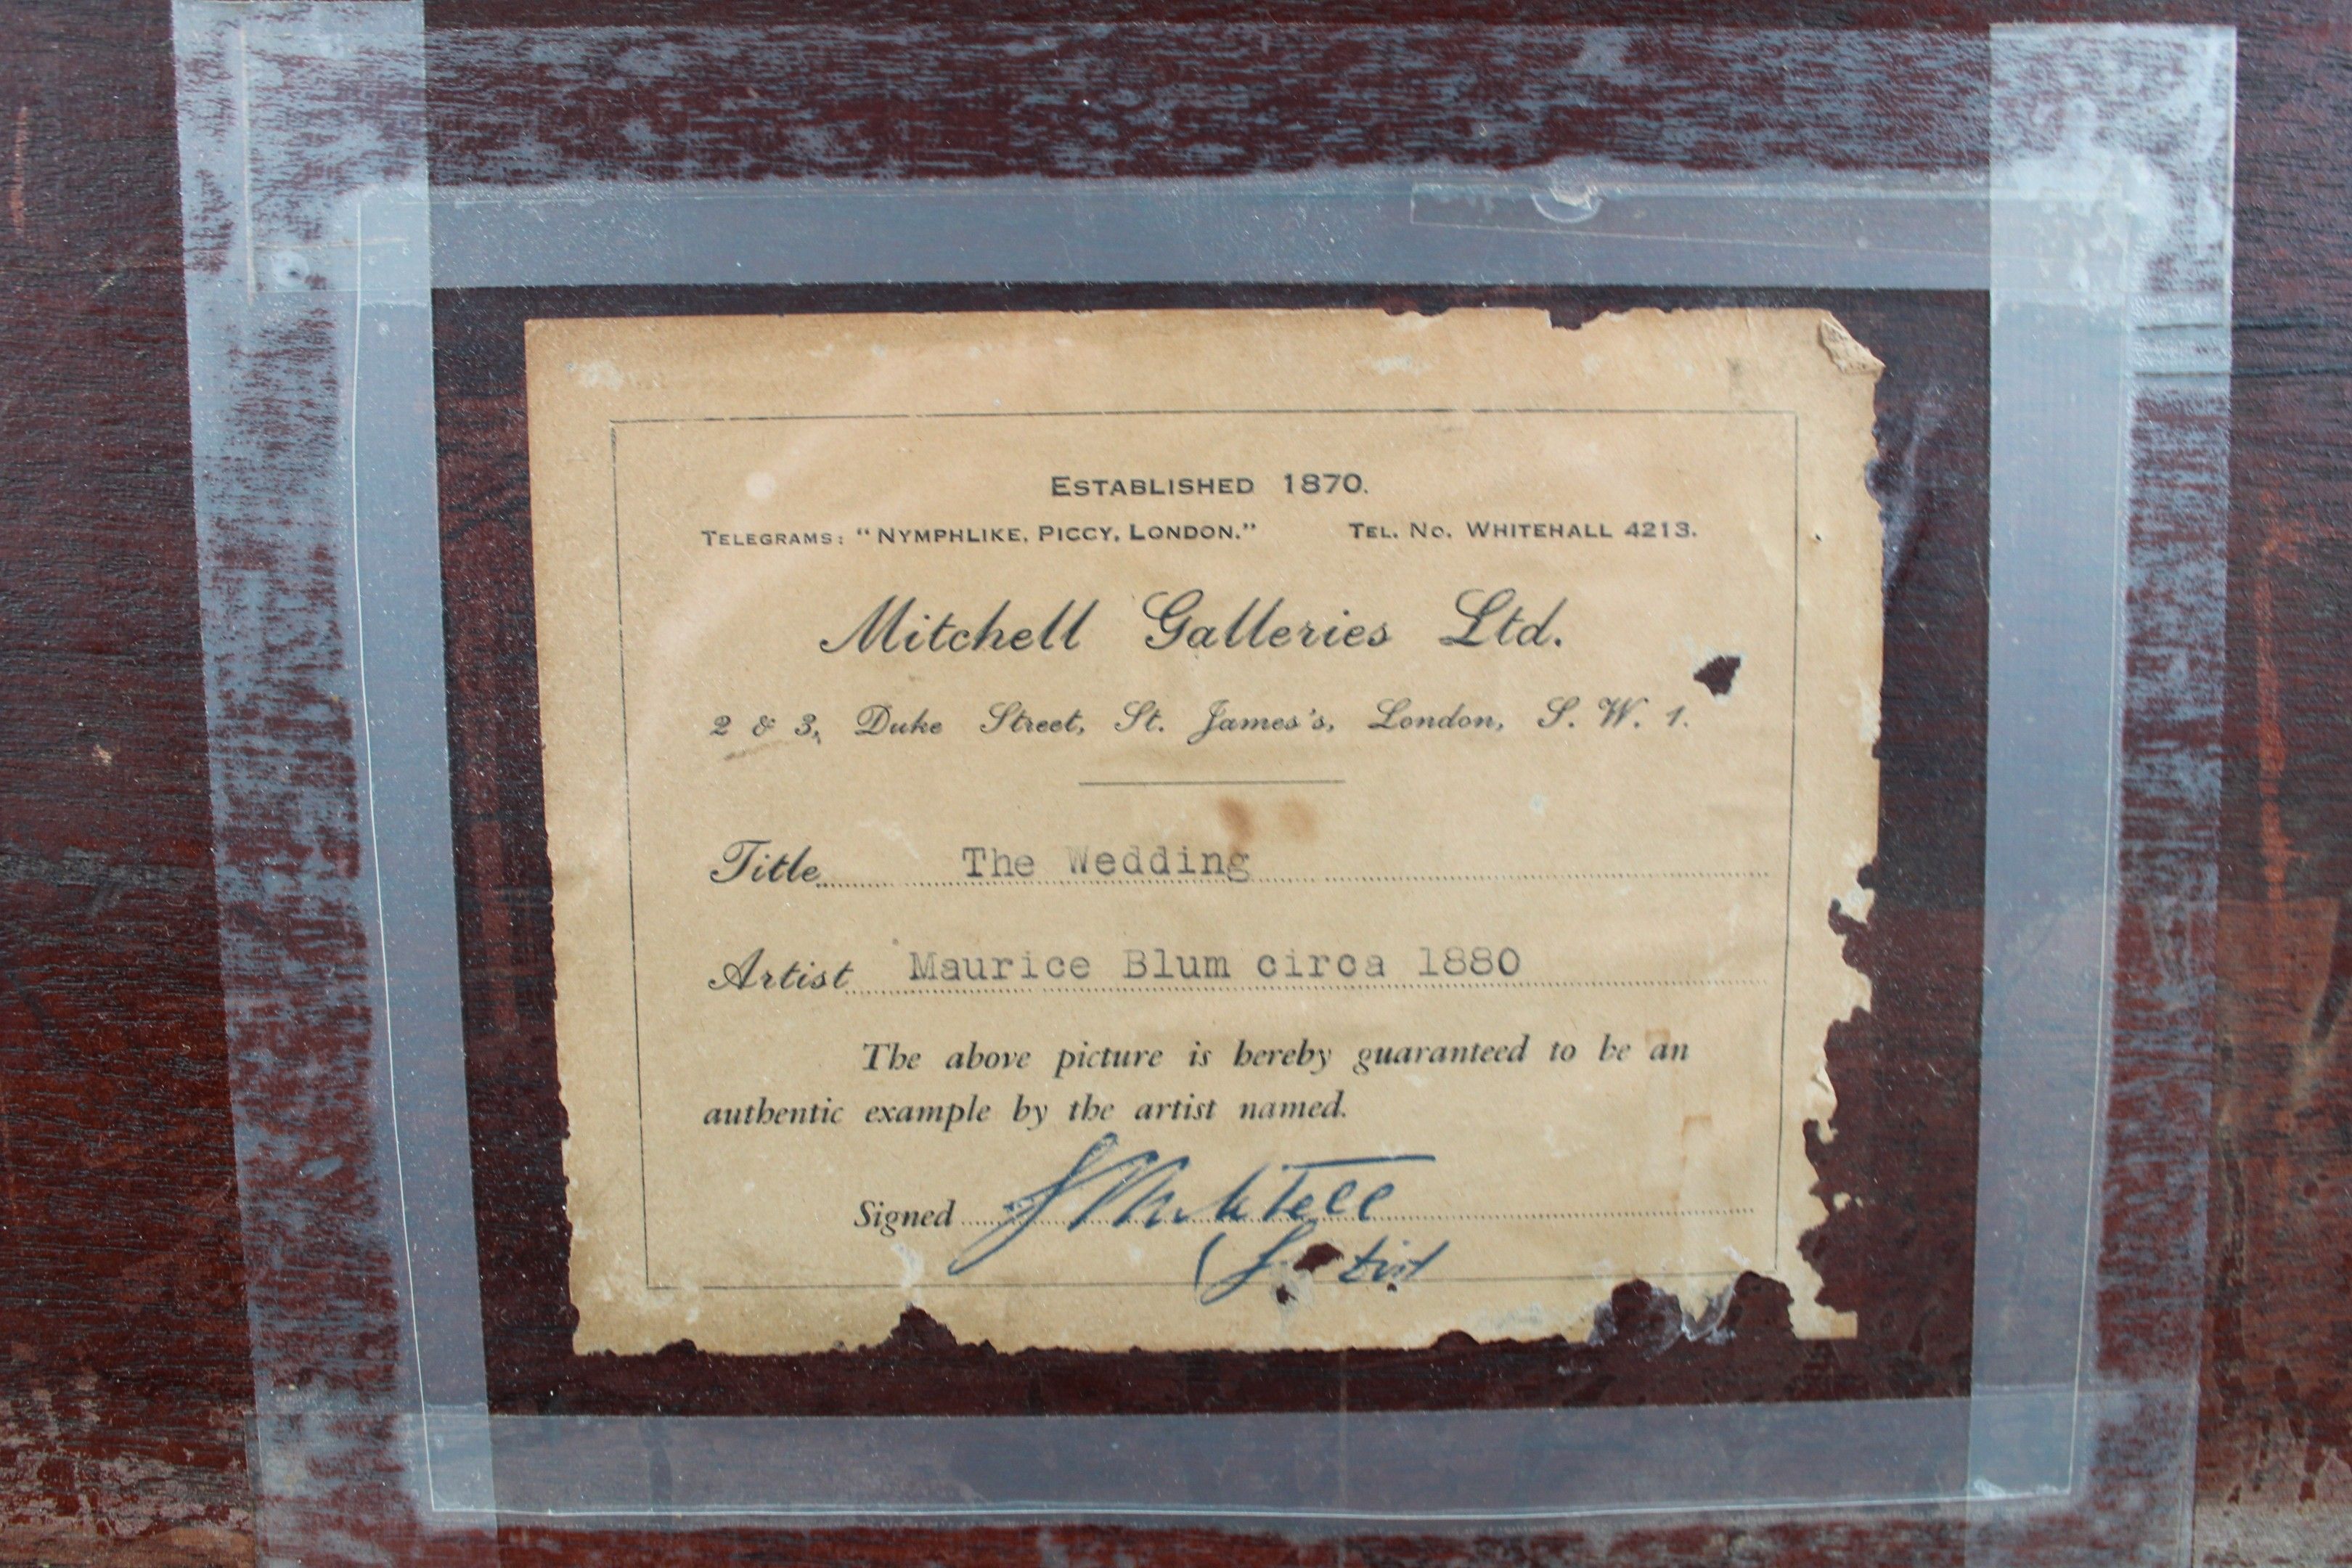 ESTABLISHED 1870.
TELEGRAMS: "NYMPHLIKE, PICCY, LONDON." TEL. NO. WHITEHALL 4213.
Mitchell Galleries Ltd.
2 & 3, Duke Street, St. James's, London, S. W. 1.
Title The Wedding
Artist Maurice Blum circa 1880
The above picture is hereby guaranteed to be an
authentic example by the artist named.
Signed